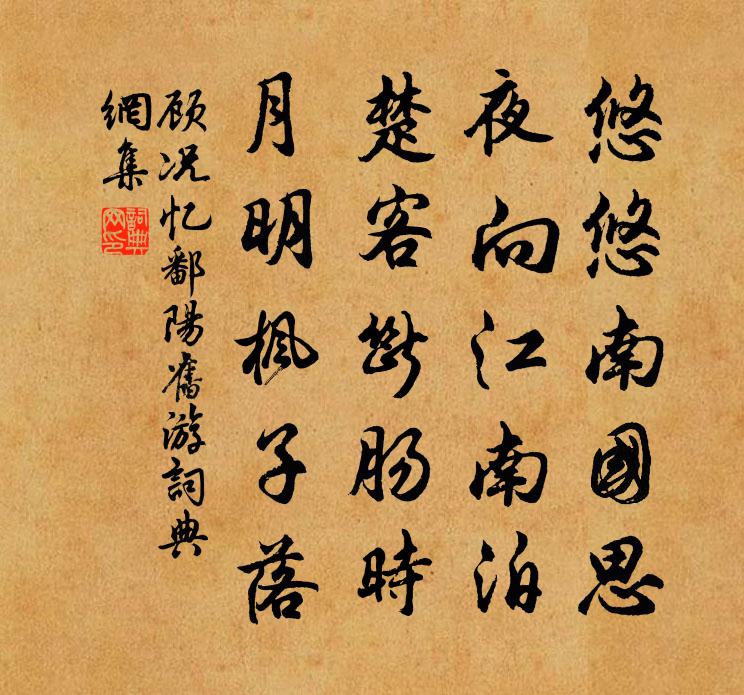 悠悠南國思
夜向江南泊
楚客斷腸時
月明楓子落
顾况忆鄱陽舊游詞典
網集
詞典
网印